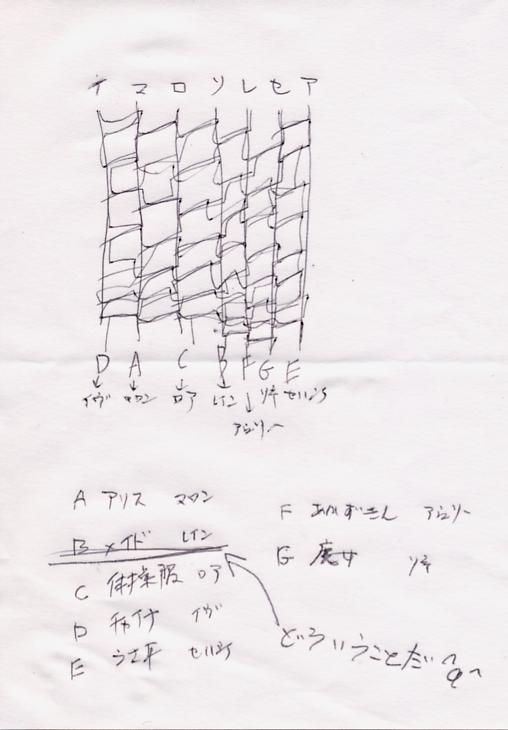 イ マ ロ ソ レ セ ア
D A C B F G E
イヴ マロン ロア レイン ソキ セルシア
アシュリー
A アリス マロン
B メイド レイン
C 体操服 ロア
D チャイナ イヴ
E うさ耳 セルシア
F あかずきん アシュリー
G 魔女 ソキ
どういうことだ